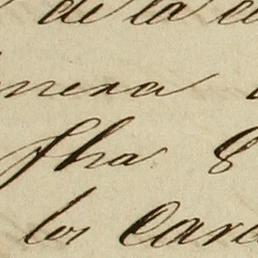 de la
nera
fha 8
los Cara